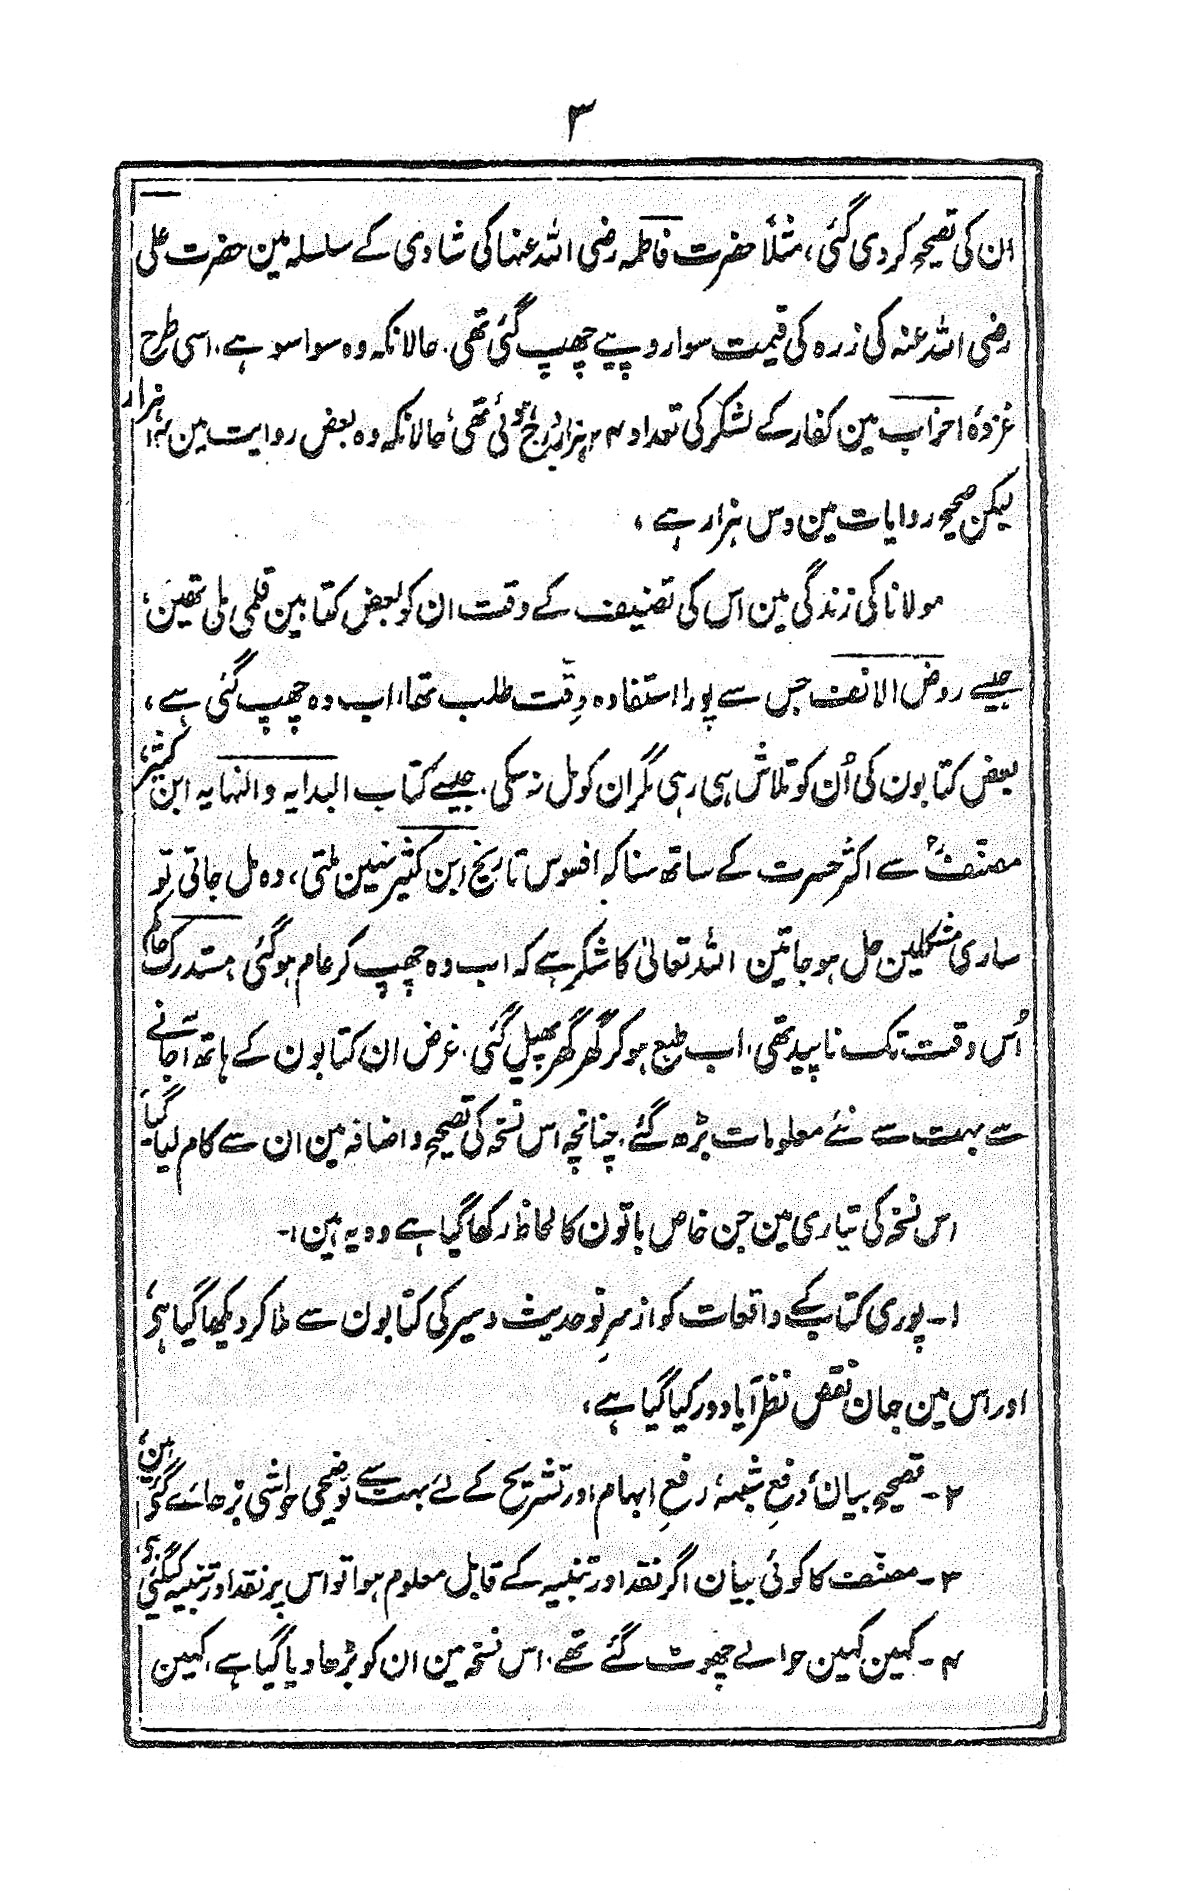 ۳
ان کی تصحیح کر دی گئی، مثلاً حضرت فاطمہ رضی اللہ عنہا کی شادی کے سلسلہ مین حضرت علی
رضی اللہ عنہ کی زرہ کی قیمت سوا روپیے چھپ گئی تھی، حالانکہ وہ سوا سو ہے، اسی طرح
غزوۂ احزاب مین کفار کے لشکر کی تعداد ۲۴ ہزار درج ہوئی تھی، حالانکہ وہ بعض روایت مین ۲۴ ہزار
لیکن صحیح روایات مین دس ہزار ہے،
مولانا کی زندگی مین اس کی تصنیف کے وقت ان کو بعض کتابین قلمی ملی تھین،
جیسے روض الانف جس سے پورا استفادہ دِقّت طلب تھا، اب وہ چھپ گئی ہے،
بعض کتابون کی اُن کو تلاش ہی رہی مگر ان کو مل نہ سکی، جیسے کتاب البدایہ والنہایہ ابن کثیر،
مصنفؒ سے اکثر حسرت کے ساتھ سنا کہ افسوس تاریخ ابن کثیر نہین ملتی، وہ مل جاتی تو
ساری مشکلین حل ہو جاتین اللہ تعالیٰ کا شکر ہے کہ اب وہ چھپ کر عام ہو گئی، مستدرک حاکم
اُس وقت تک ناپید تھی، اب طبع ہو کر گھر گھر پھیل گئی، غرض ان کتابون کے ہاتھ آجانے
سے بہت سے نئے معلومات بڑھ گئے، چنانچہ اس نسخہ کی تصحیح و اضافہ مین ان سے کام لیا گیا،
اس نسخہ کی تیاری مین جن خاص باتون کا لحاظ رکھا گیا ہے وہ یہ ہین :-
۱- پوری کتاب کے واقعات کو از سرِ نو حدیث و سیر کی کتابون سے ملا کر دیکھا گیا ہے،
اور اس مین جہان نقص نظر آیا دور کیا گیا ہے،
۲- تصحیحِ بیان، دفعِ شبہہ، رفعِ ابہام اور تشریح کے لئے بہت سے توضیحی حواشی بڑھائے گئے ہین،
۳- مصنّف کا کوئی بیان اگر نقد اور تنبیہ کے قابل معلوم ہوا تو اس پر نقد اور تنبیہ کی گئی ہے،
۴- کہین کہین حوالے چھوٹ گئے تھے، اس نسخہ مین ان کو بڑھا دیا گیا ہے، کہین